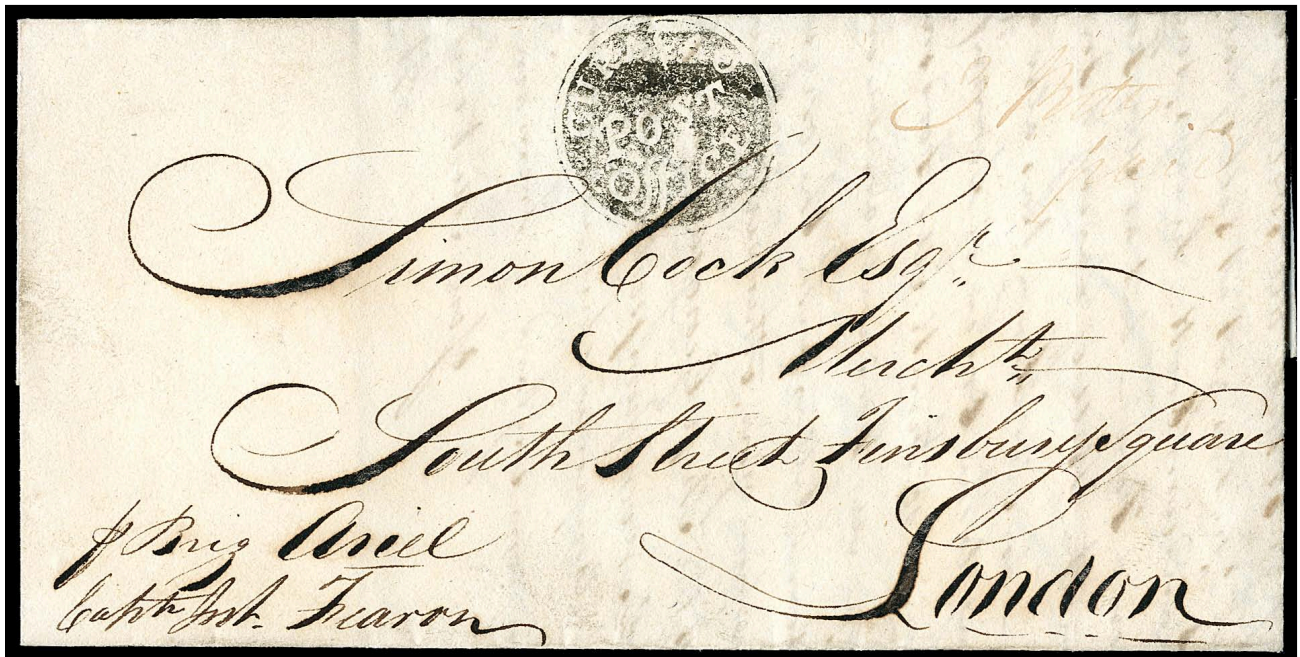 CURAÇAO
POST
OFFICE
paid
Simon Cock Esqr.
Merchtt.
South Street Finsbury Square
London
p Brig Ariel
Captn Jnt. Fearon